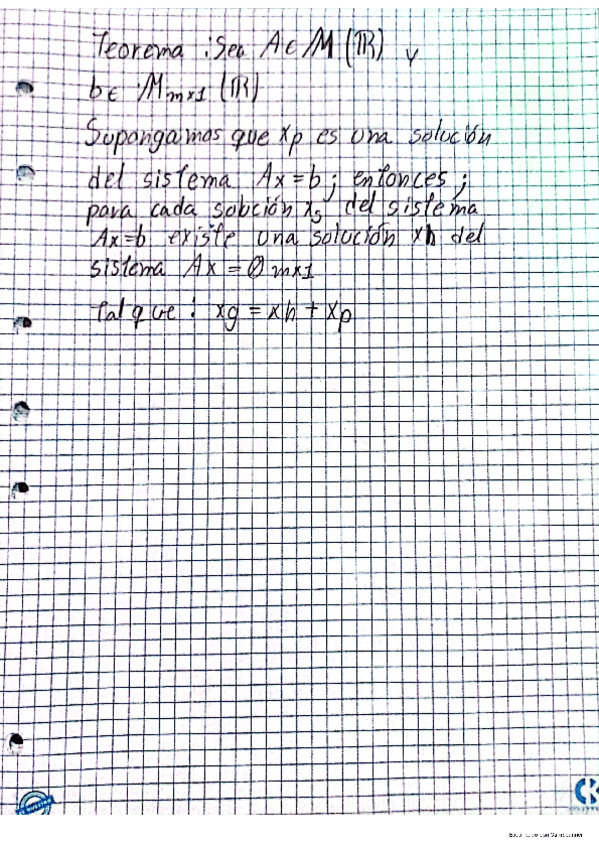 Teorema : Sea A ∈ M (ℝ) y
b ∈ M m×1 (ℝ)
Supongamos que xp es una solución
del sistema Ax = b ; entonces ;
para cada solución xg del sistema
Ax=b existe una solución xh del
sistema Ax = 0 m×1
tal que : xg = xh + xp
CK